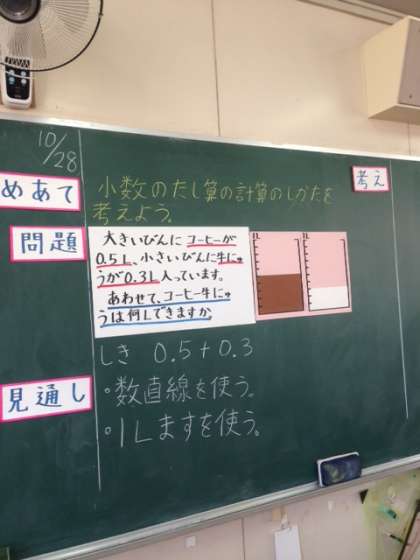 10/28
めあて
小数のたし算の計算のしかたを
考えよう。
考え
問題
大きいびんにコーヒーが
0.5L、小さいびんに牛にゅ
うが0.3L入っています。
あわせて、コーヒー牛にゅ
うは何Lできますか。
1L
1L
しき 0.5+0.3
見通し
・数直線を使う。
・1Lますを使う。